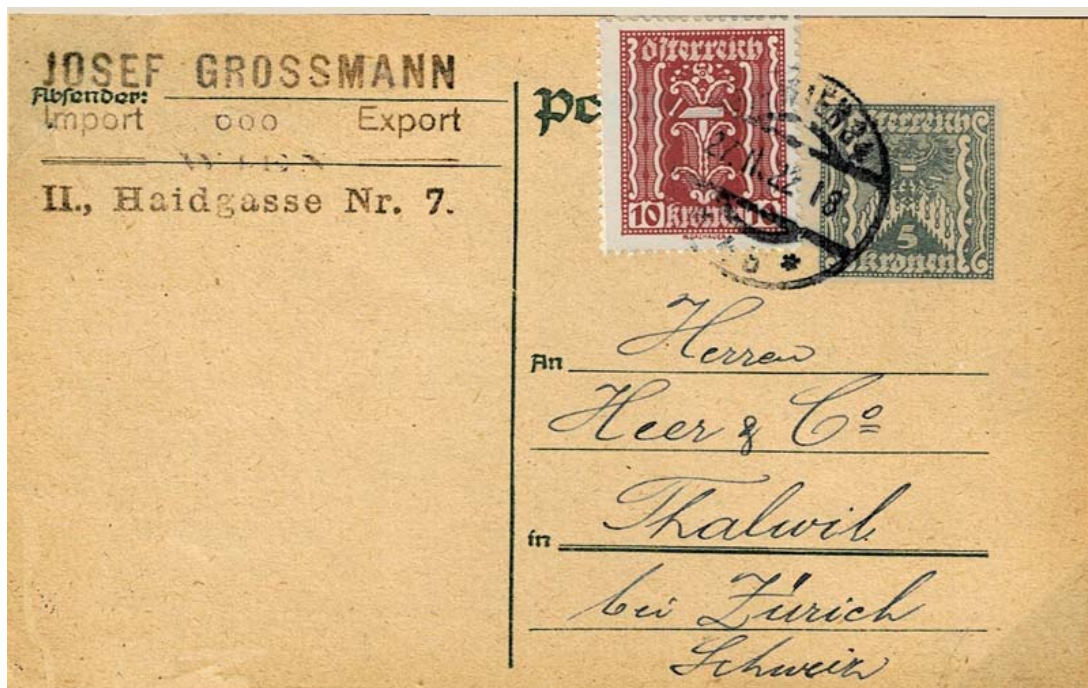 JOSEF GROSSMANN
Absender:
Import ooo Export
WIEN
II., Haidgasse Nr. 7.
Po
österreich
10 kronen 10
WIEN 34
27.II.22 18
österreich
5
kronen
An Herren
Heer & Co
in Thalwil
bei Zürich
Schweiz